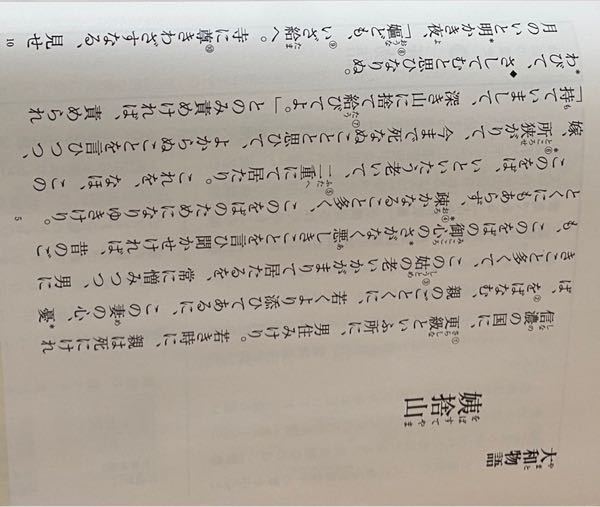 大和物語
姨捨山
信濃の国に、更級といふ所に、男住みけり。若き時に、親は死にけれ
ば、をばなむ、親のごとくに、若くより添ひてあるに、この妻の心、憂
きこと多くて、この姑の老いかがまりて居たるを、常に憎みつつ、男に
も、このをばの御心のさがなく悪しきことを言ひ聞かせければ、昔のご
とくにもあらず、疎かなること多く、このをばのためになりゆきけり。
このをば、いといたう老いて、二重にて居たり。これを、なほ、この
嫁、所狭がりて、今まで死なぬことと思ひて、よからぬことを言ひつつ、
「持ていまして、深き山に捨て給びてよ。」とのみ責めければ、責められ
わびて、さしてむと思ひなりぬ。
月のいと明かき夜、「嫗ども、いざ給へ。寺に尊きわざすなる、見せ
5
10